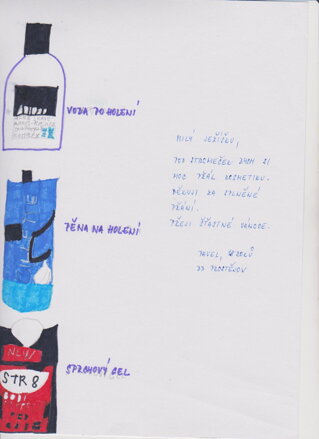 VODA PO HOLENÍ
PĚNA NA HOLENÍ
NEW
STR8
SPRCHOVÝ GEL
MILÝ JEŽÍŠKU,
POD STROMEČEK BYCH SI
MOC PŘÁL KOSMETIKU.
DĚKUJI ZA SPLNĚNÉ
PŘÁNÍ.
PŘEJI ŠŤASTNÉ VÁNOCE.
PAVEL,
PROSTĚJOV